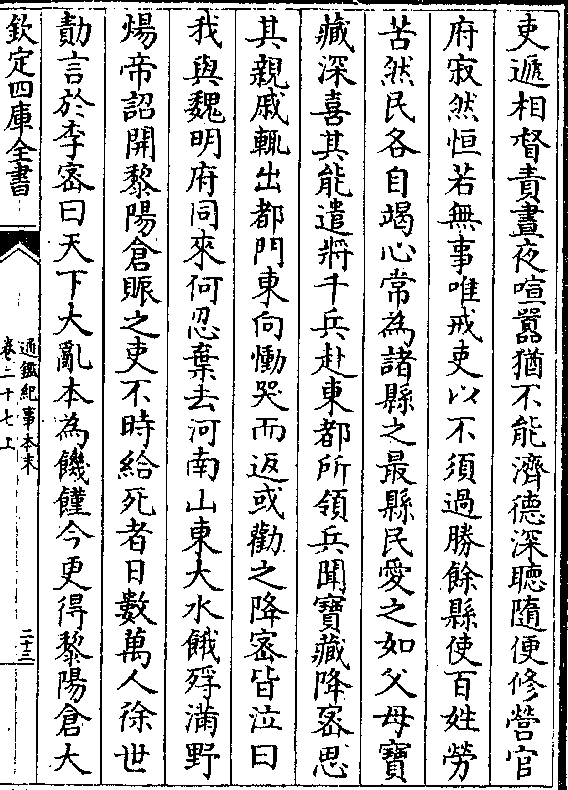 吏遞相督責晝夜喧囂猶不能濟德深聽隨便修營官
府寂然恒若無事唯戒吏以不須過勝餘縣使百姓勞
苦然民各自竭心常為諸縣之最縣民愛之如父母寶
藏深喜其能遣將千兵赴東都所領兵聞寶藏降密思
其親戚輒出都門東向慟哭而返或勸之降密皆泣曰
我與魏明府同來何忍棄去河南山東大水餓殍滿野
煬帝詔開黎陽倉賑之吏不時給死者日數萬人徐世
勣言於李密曰天下大亂本為饑饉今更得黎陽倉大
欽定四庫全書
通鑑紀事本末
卷二十七上
二十三